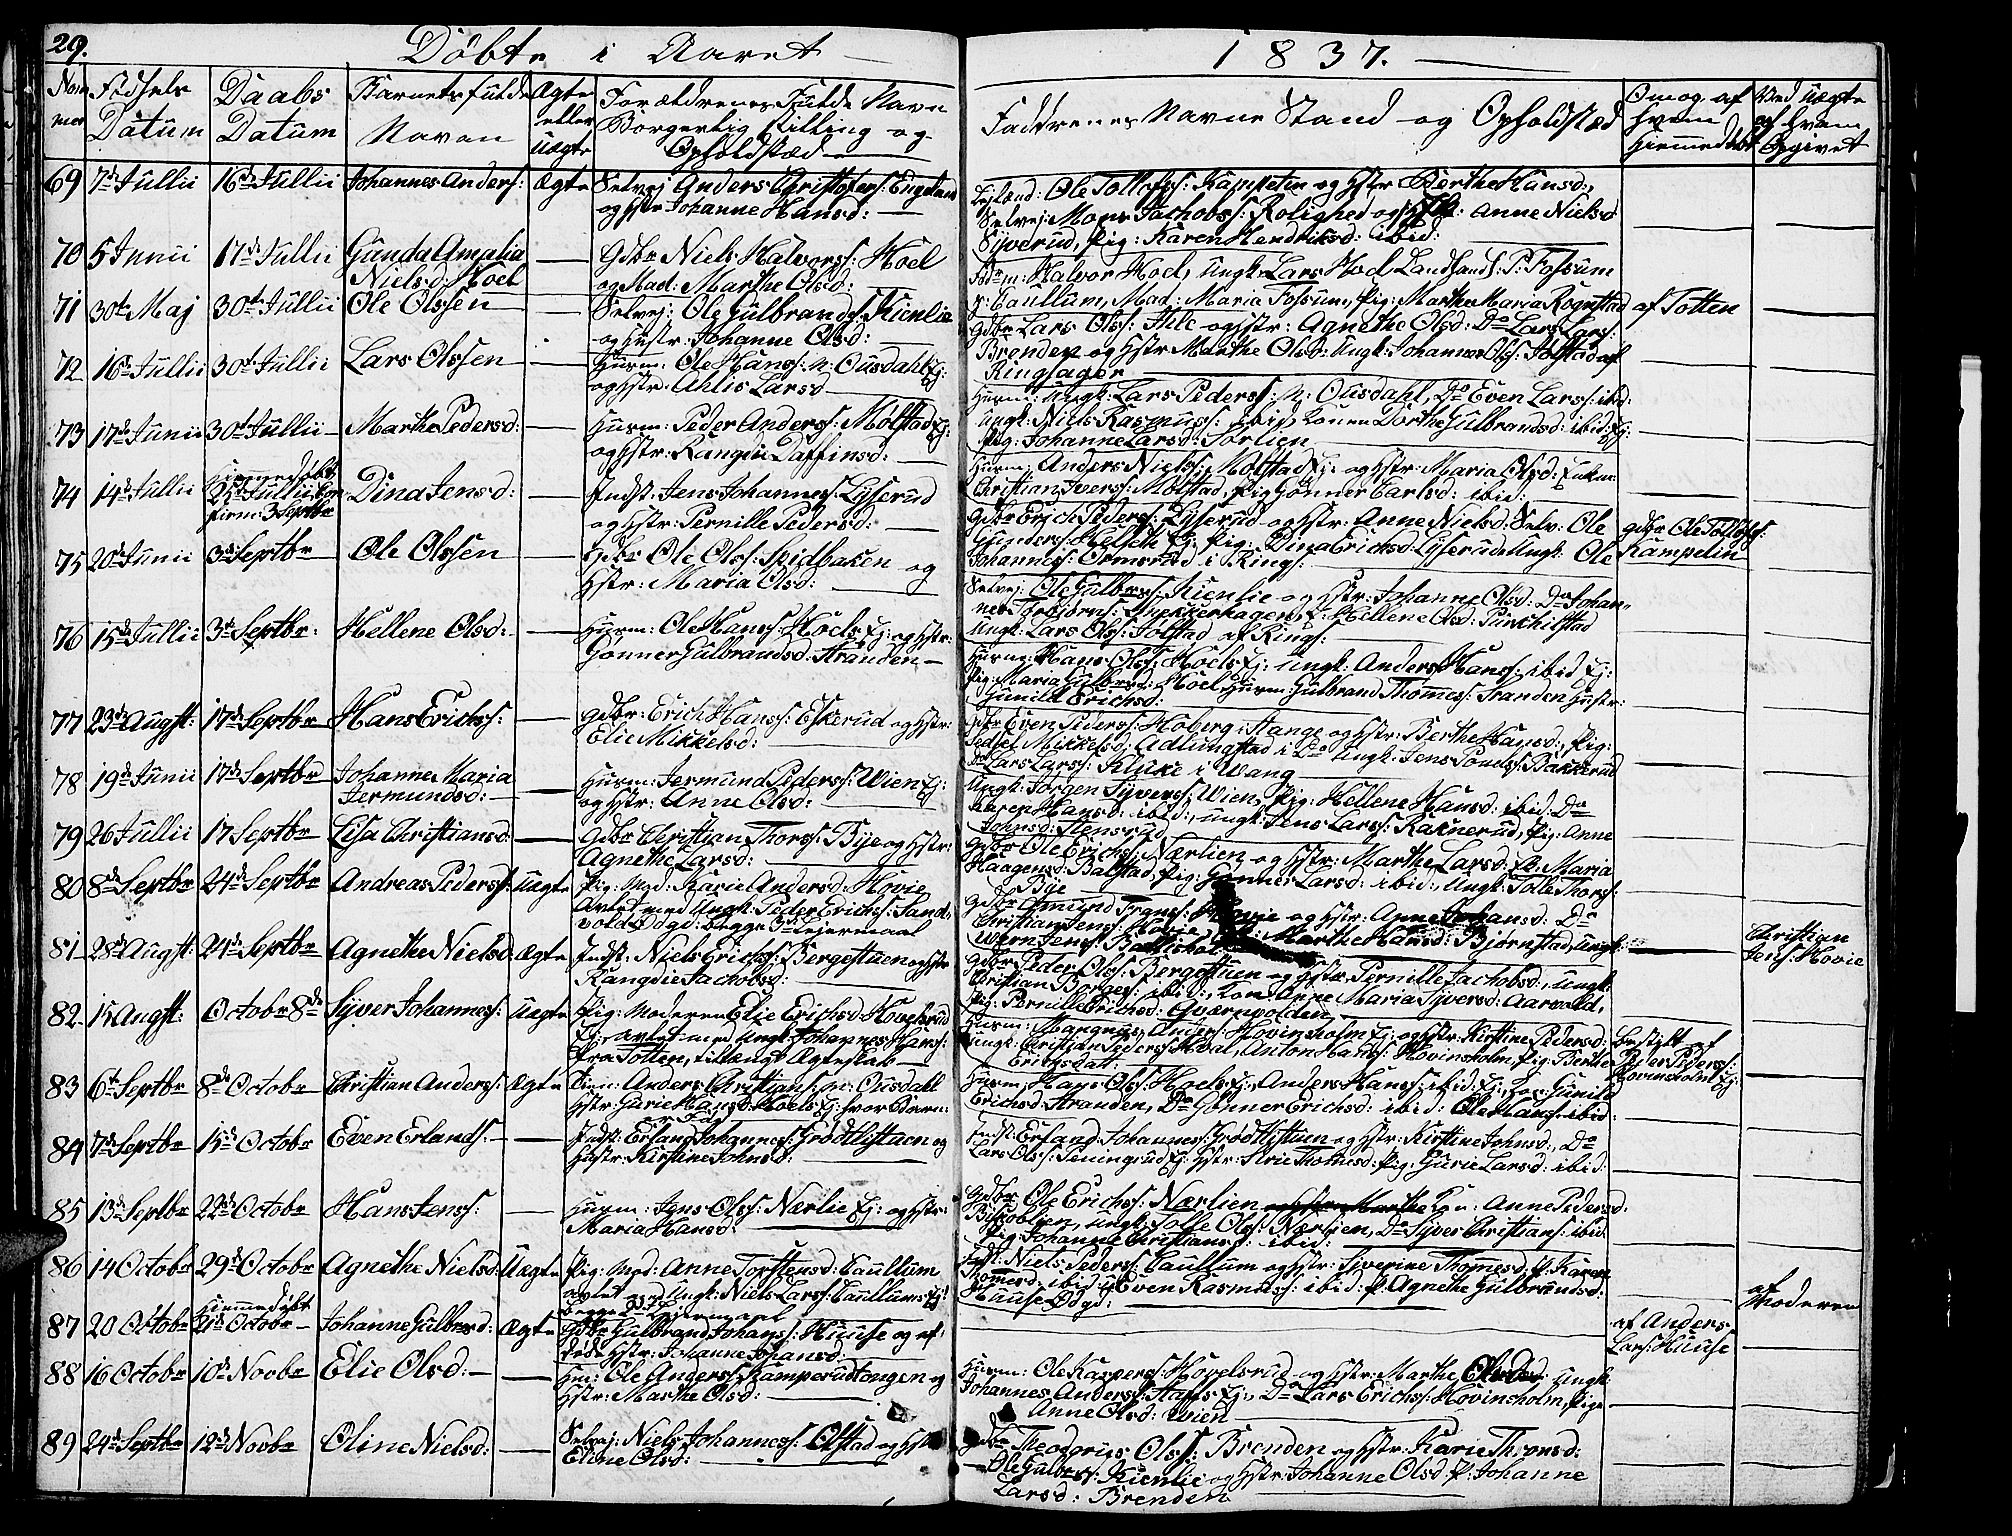 29.
Döbte i Aaret
1837.
Födsels Datum
Daabs Datum
Barnets fulde Navn
Ægte eller uægte
Forældrenes Fulde Navn
Borgerlig Stilling og
Opholdstæd
Faddrenes Navne Stand og Opholdstæd
Om og af hvem Hiemmedöbt
Ved uægte af hvem Opgivet
69 7de Jullii 16de Jullii Johannes Anders: Ægte Selvej Anders Christofers: Engelund
og Hstr Johanne Hansd:
Ole Tollefss: Kampelin og Hstr Berthe Hansd:,
Selvej: Mons Jachobs: Rolighed og Hstr: Anne Nielsd
Syverud, Pig: Karen Hendriksd: ibid:
70 5 Junii 17de Jullii Gunda Amalia
Nielsd: Hoel
Gdbr Niels Halvorss: Hoel
og Mad: Marthe Olsd:
Halvor Hoel, Ungk: Lars Hoel Landhandl: P: Fossum
Caullum, Mad: Maria Fossum, Pig: Marthe Maria Rognstad
71 30te Maj 30te Jullii Ole Olssen
Selvej: Ole Gulbrands: Kienlie
og Hustr: Johanne Olsd:
Gdbr Lars Olss: Ihle og Hstr: Agnethe Olsd: Do Lars Lars:
Brenden og Hstr Marthe Olsd: Ungk: Johannes Olss: Jolstad af
Ringsager
af Totten
72 16de Jullii 30te Jullii Lars Olssen
Huusm: Ole Hanss: n: Ousdahl Ej:
og Hstr: Ahlis Larsd
Husm: Ungk: Lars Peders: n: Ousdahl, Do Even Lars: ibid:
Ungk: Niels Rasmuss: ibid, Konen Dorthe Gulbrandsd: ibid: Ej:
Pig: Johanne Larsd: Sörlien
73 17de Junii 30te Jullii Marthe Pedersd:
Husm: Peder Anderss: Molstad Ej:
og Hstr: Rangdie Daffinsd:
Husm: Anders Nielss: Molstad Ej: og Hstr: Maria Olsd: Enkem:
Christian Ivers: Molstad, Pig Gonner Carlsd: ibid:
74 14de Jullii Hiemmedöbt
Jullii Con
firm: 3 Septbr
Dina Jensd:
Indst: Jens Johanness: Lyserud
og Hstr: Pernille Pedersd:
Gdbr Erich Peders: Lyserud og Hstr: Anne Nielsd: Selv: Ole
Gunders: Helseth Ej: Pig: Dina Erichsd: Lyserud Ungk: Ole
Johanness: Ormsrud i Rings:
gdbr Ole Tollefss:
Kampelin
75 20de Junii 3de Septbr Ole Olssen
Gdbr Ole Olss: Spidbaken og
Hstr: Maria Olsd:
Selvej: Ole Gulbrss: Kienlie og Hstr: Johanne Olsd: Do Johan-
nes Torbjörns: Snekkerhagen, P: Hellene Olsd:
Ungk: Lars Olss: Jolstad af Rings:
76 15de Jullii 3de Septbr: Hellene Olsd:
Husm: Ole Hanss: Hoels Ej: og Hstr:
Gonner Gulbrandsd: Stranden
Husm: Hans Olss: Hoels Ej: Ungk: Anders Hanss: ibid Ej:
Pig: Maria Gulbrsd: Hoel, Husm: Gulbrand Thomess: Stranden Hustr:
Gunild Erichsd:
77 23de Augst: 17de Septbr Hans Erichss:
Gdbr: Erich Hanss: Eskerud og Hstr:
Elie Mikkelsd:
Gdbr Even Peders: Hoberg: Stange og Hstr: Berthe Hansd:, Pig:
Sedsel Mikkelsd: Adlungstad i Do Ungk: Jens Tönds: Bakkerud
Do Lars Larss: Kluke i Wang
78 19de Junii 17de Septbr Johanne Maria
Jermundsd:
Husm: Jermund Pederss: Wien Ej:
og Hstr: Anne Olsd:
Ungk: Jörgen Syverss: Wien, Pig: Hellene Hansd: ibid: Do
Karen Hansd: ibid:, Ungk: Jens Larss: Raknerud, Pig: Anne
Johnsd: Stensrud
79 26 Jullii 17 Septbr Lisa Christiansd:
Gdbr Christian Thorss: Bye og Hstr:
Agnethe Larsd:
gdbr Ole Erichs: Nærlien og Hstr: Marthe Larsd: Maria
Haagensd: Balstad, Pig: Gonner Larsd: ibid:, Ungk: Tolle Thors:
Bye
80 8de Septbr 24de Septbr Andreas Peders: Uægte
Pig: Mod: Karie Andersd: Hovie
Avlet med Ungk: Peder Erichs: Sand-
Begge 1de Lejermaal
gdbr Amund Frans: Hovie og Hstr: Anne Johansd: Do
Christian Jens: Hovie, Marthe Hansd: Björnstad, Ungk:
81 28de Augst: 24de Septbr Agnethe Nielsd: Ægte
Indst: Niels Erichs: Bergestuen og Hstr
Rangdie Jachobsd:
gdbr Peder Olss: Bergestuen og Hstr: Pernille Jachobsd:, Ungk:
Christian Börges: ibid:, Kon: Anne Maria Syversd: Aarvold,
Pig: Pernille Erichsd: Qværnvolden
Christian
Jens: Hovie
82 15 Augst: Octobr 8de Syver Johanness: Uægte
Pig: Moderen Elie Erichsd: Hovelsrud
Ej: avlet med Ungk: Johannes Hanss:
fra Totten, tillangt Ægteskab
Husm: Mangnus Anders: Hovinsholm Ej: og Hstr: Kirstine Pedersd:
Ungk: Christian Peders: Hoel, Anton Hovinsholm, Pig: Berthe
Erichsdatt:
Bestilt af
Peder Peders:
Hovinsholm Ej:
83 6te Septbr 8de Octobr Christian Anderss: Ægte
Anders Christians: n: Ousdahl
Hstr: Gurie Hansd: Hoels Ej:
Husm: Hans Olss: Hoels Ej:, Anders Hanss: ibid: Ej: Kon: Gunild
Erichsd: Stranden, Do Gonner Erichsd: ibid: Ole Hans: ibid:
84 7de Septbr 15de Octobr Even Erlands:
Indst: Erland Johanness: Grödtlistuen og
Hustr: Kirstine Johnsd:
Indst: Erland Johanness: Grödtlistuen og Hstr: Kirstine Johnsd:, Do
Lars Olss: Seningrud Ej: Hstr: Sirie Thomesd: Pig: Gurie Larsd: ibid:
85 13de Septbr 22de Octobr Hans Jenss:
Husm: Jens Olss: Nærlie Ej: og Hstr:
Maria Hansd:
Gdbr Ole Erichs: Nærlien og Hstr: Marthe Kon: Anne Pedersd:
Biskoblien, Ungk: Tolle Olss: Nærlien, Do Syver Christians: ibid
Pig: Johanne Christiansd: ibid:
86 14 Octobr 29de Octobr Agnethe Nielsd: Uægte
Pig: Mod: Anne Torstensd: Caullum
avlet med Ungk: Niels Larss: Caullums Ej:
begge 1ste Lejermaal
Indst: Niels Peders: Caullum og Hstr: Syverine Thomesd: P: Karen
Thomesd: ibid: U: Even Rasmus: ibid: P: Agnethe Gulbrandsd:
Huuse Ödgd:
af
Moderen
87 20 Octobr Hiemmedöbt
21de Octobr Johanne Gulbrsd: Ægte
Gdbr Gulbrand Johans: Huuse og af-
döde Hstr: Johanne Johansd:
af Anders
Lars: Huuse
88 16 Octobr 10de Novbr Elie Olsd:
Hm: Ole Anders: Kamperudtangen og
Hstr: Marthe Olsd:
Husm: Ole Kaspers: Hovelsrud og Hstr: Marthe Olsd: Ungk
Johannes Anders: Staffs Ej:, Do Lars Erichs: Hovinsholm, Pige
Anne Olsd: Wien
89 24de Septbr 12de Novbr Oline Nielsd:
Selvej: Niels Johanness: Olstad og Hstr
Eline Olsd:
gdbr Theodorius Olss: Brenden og Hstr: Karie Thronsd:
Ole Gulbrss: Kienlie og Hstr: Johanne Olsd: P: Johanne
Larsd: Brenden